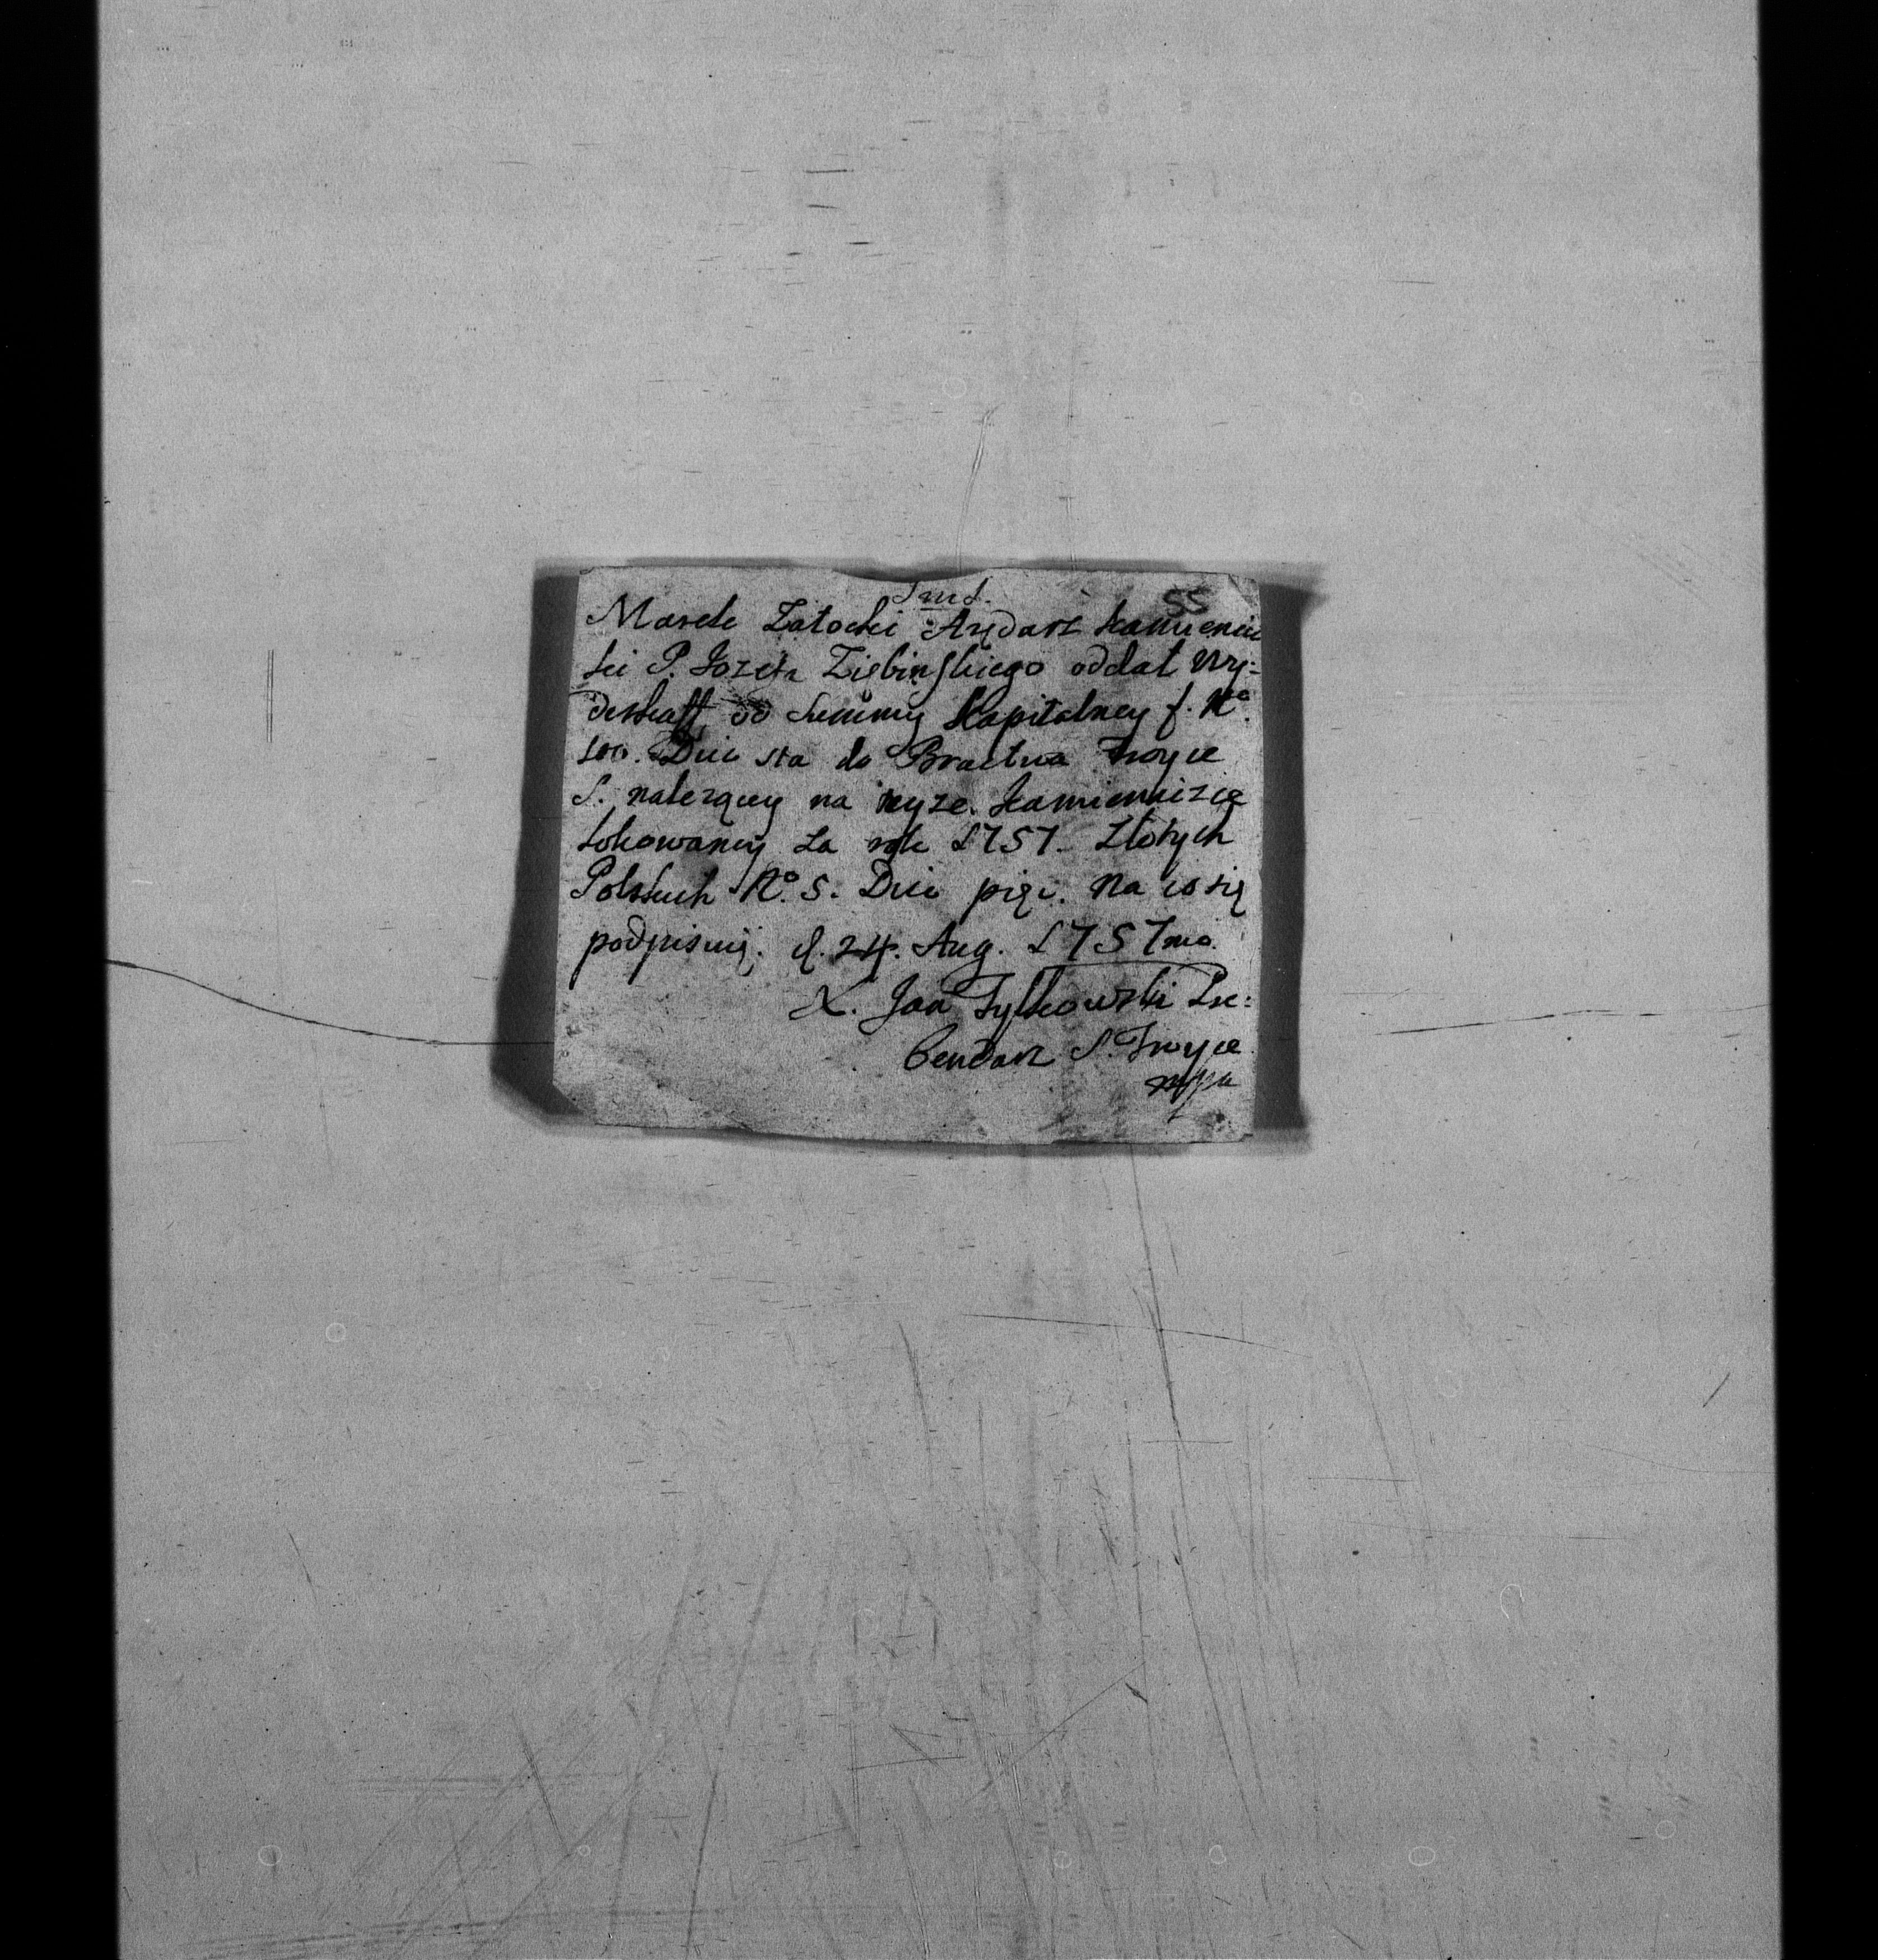 55
Marek Zatocki Arędarz kamienic
ki P. Jozefa Ziębinskiego oddał wy=
derkaff od Summy kapitalney f. No.
100. Dico sta do Bractwa Troyce
S. nalezącey na teyze kamienicze
lokowaney za rok 1757. Złotych
Polskich No. 5. Dico pięc. Na co się
podpisuię. d. 24. Aug. 1757mo.
X. Jan Fylkowski Pre=
bendarz S. Troyce
mpp